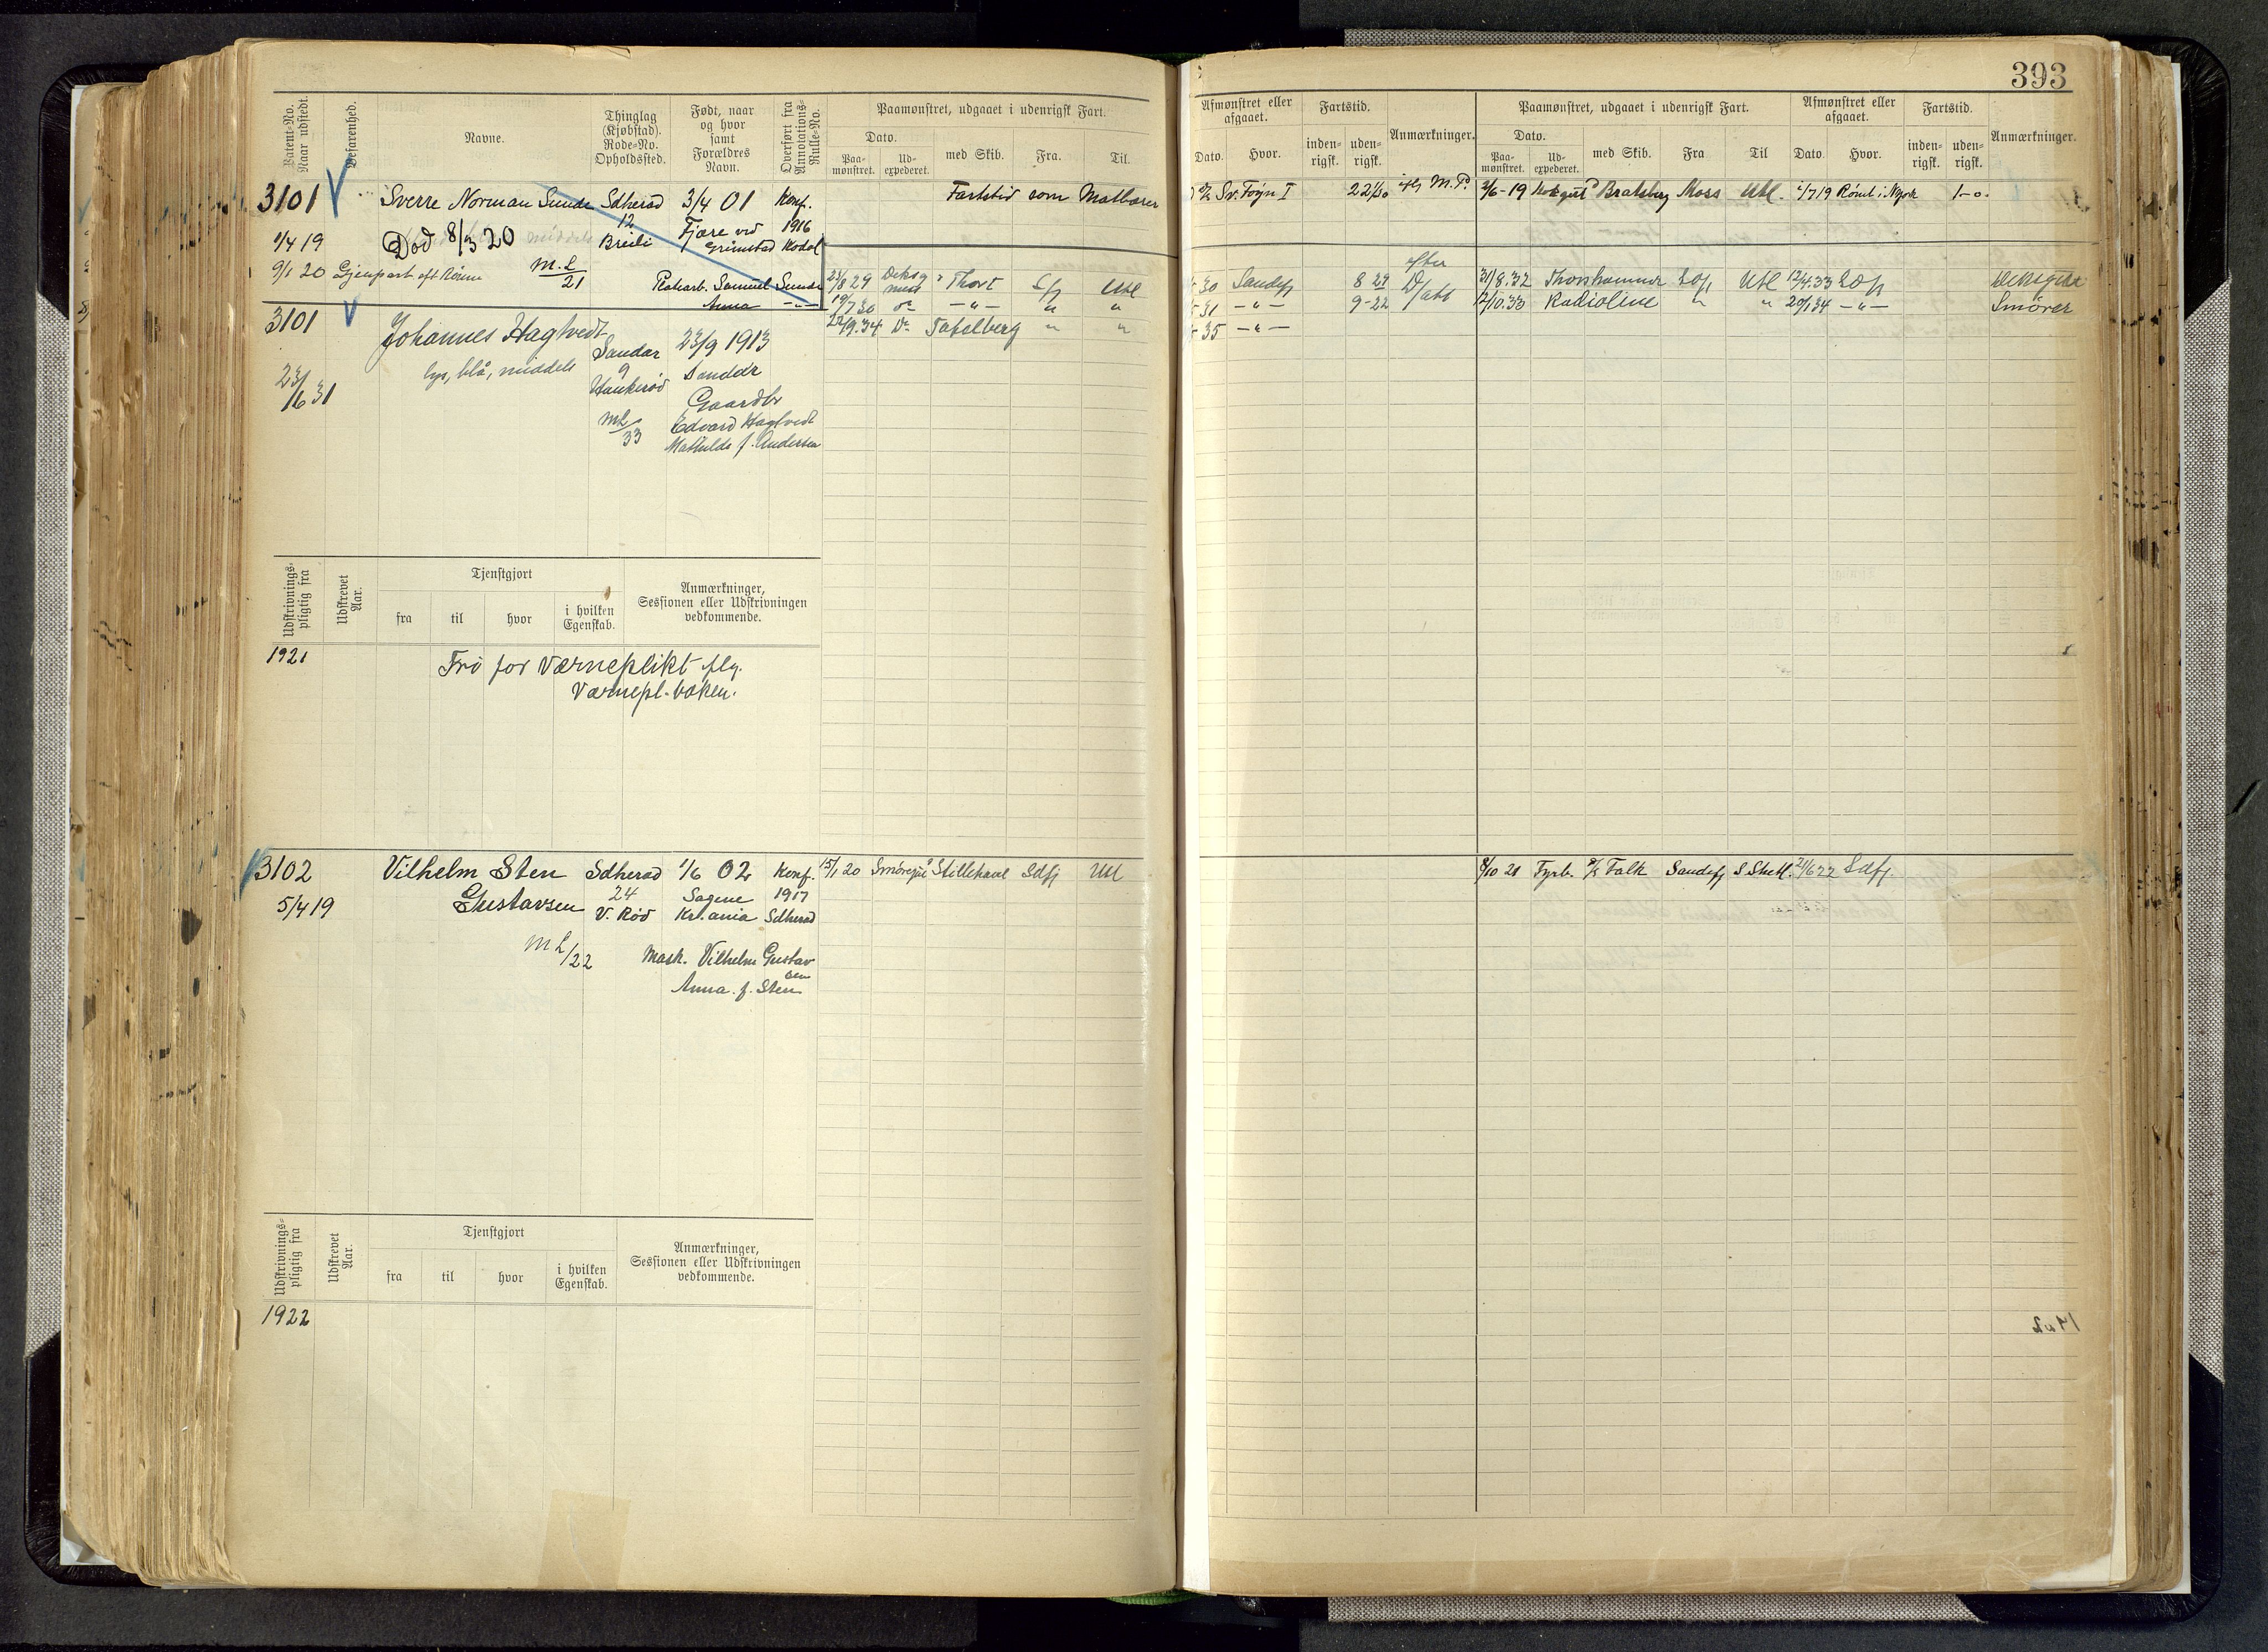 393
Patent-No. Naar udstedt.
Befarenhed.
Navne.
Thinglag (Kjøbstad). Rode-No. Opholdssted.
Født, naar og hvor samt Forældres Navn.
Overført fra Annotations-Rulle-No.
Paamønstret, udgaaet i udenrigsk Fart.
Dato.
Paa-mønstret.
Ud-expederet.
med Skib.
Fra.
Til.
Afmønstret eller afgaaet.
Dato.
Hvor.
Fartstid.
inden-rigsk.
uden-rigsk.
Anmærkninger.
Paamønstret, udgaaet i udenrigsk Fart.
Dato.
Paa-mønstret.
Ud-expederet.
med Skib.
Fra
Til
Afmønstret eller afgaaet.
Dato.
Hvor.
Fartstid.
inden-rigsk.
uden-rigsk.
Anmærkninger.
3101 Sverre Norman Sunde Sdherad 3/4 01 Konf. Fartstid som Matbærer
Sv. Foyn I M.P. 3/6-19 Bratsberg Moss Utl. 1/7 19 Rømt i N.york 1-0.
12 Fjære ved 1916
1/4 19 Død 8/3 20 Breili Grimstad Kodal
9/1 20 Gjenpart eft Rømn M.L 21 Samuel Sunde
Anna -"-
23/8 29 Thort Sfj Utl
30 Sandefj 8 29 31/8.32 Thorshammer Sdfj Utl 12/4.33 Sdfj Deksgut
19/7 30 do -"- " "
31 -"- 9-22 12/10.33 Radioline " " 20/1 34 -"- Smører
22/9.34 Do Tafelberg " "
35 -"-
3101 Johannes Hagtvedt Sandar 23/9 1913
lys, blå, middels 9 Sandar
23/6 31 Haukerød Gaardbr
ML 33 Edvard Hagtvedt
Mathilde f. Andersen
Udskrivnings-pligtig fra
Udskrevet Aar.
Tjenstgjort
fra
til
hvor
i hvilken Egenskab.
Anmærkninger, Sessionen eller Udskrivningen vedkommende.
1921 Fri for værneplikt flg.
Værnepl.boken.
3102 Vilhelm Sten Sdherad 1/6 02 Konf. 15/1 20 Stillehavet Sdfj Utl
8/10 21 Fyrb. Falk Sandefj S. Shetl. 21/6 22 Sdfj.
5/4 19 Gustavsen 24 Sagene 1917
V. Rød Kr.ania Sdherad
ML/22 Mask. Vilhelm Gustavsen
Anna f. Sten
Udskrivnings-pligtig fra
Udskrevet Aar.
Tjenstgjort
fra
til
hvor
i hvilken Egenskab.
Anmærkninger, Sessionen eller Udskrivningen vedkommende.
1922